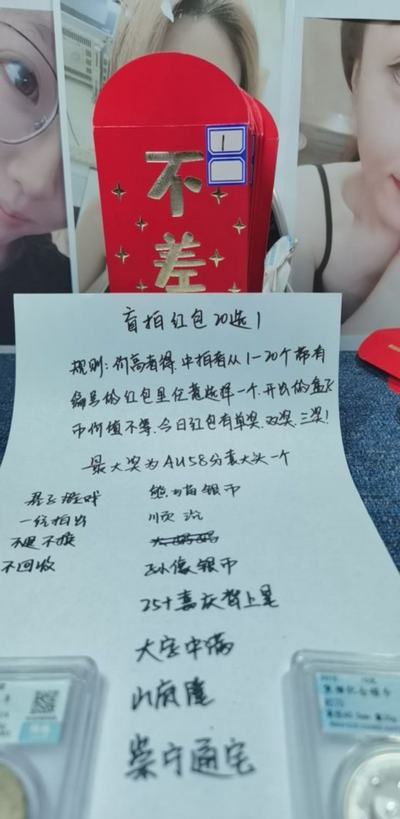 1
不
差
盲拍红包20选1
规则:价高者得.中拍者从1-20个带有
编号的红包里任意选择一个.开出的盒子
币价值不等.今日红包有单奖.双奖.三奖!
最大奖为AU58分袁大头一个
游戏
一经拍出
不退不换
不回收
熊猫银币
顺治
孙像银币
25+嘉庆背上星
大定中满
山底隆
崇宁通宝